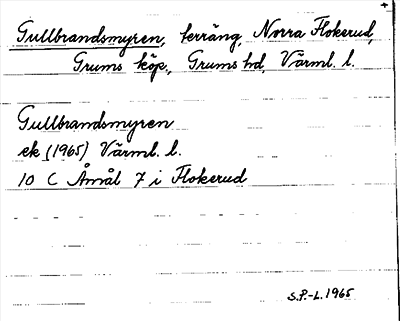 Gullbrandsmyren, terräng, Norra Flokerud,
Grums köp., Grums hd, Värml. l.
Gullbrandsmyren
ek (1965) Värml. l.
10 C Åmål 7 i Flokerud
S.P.-L. 1965